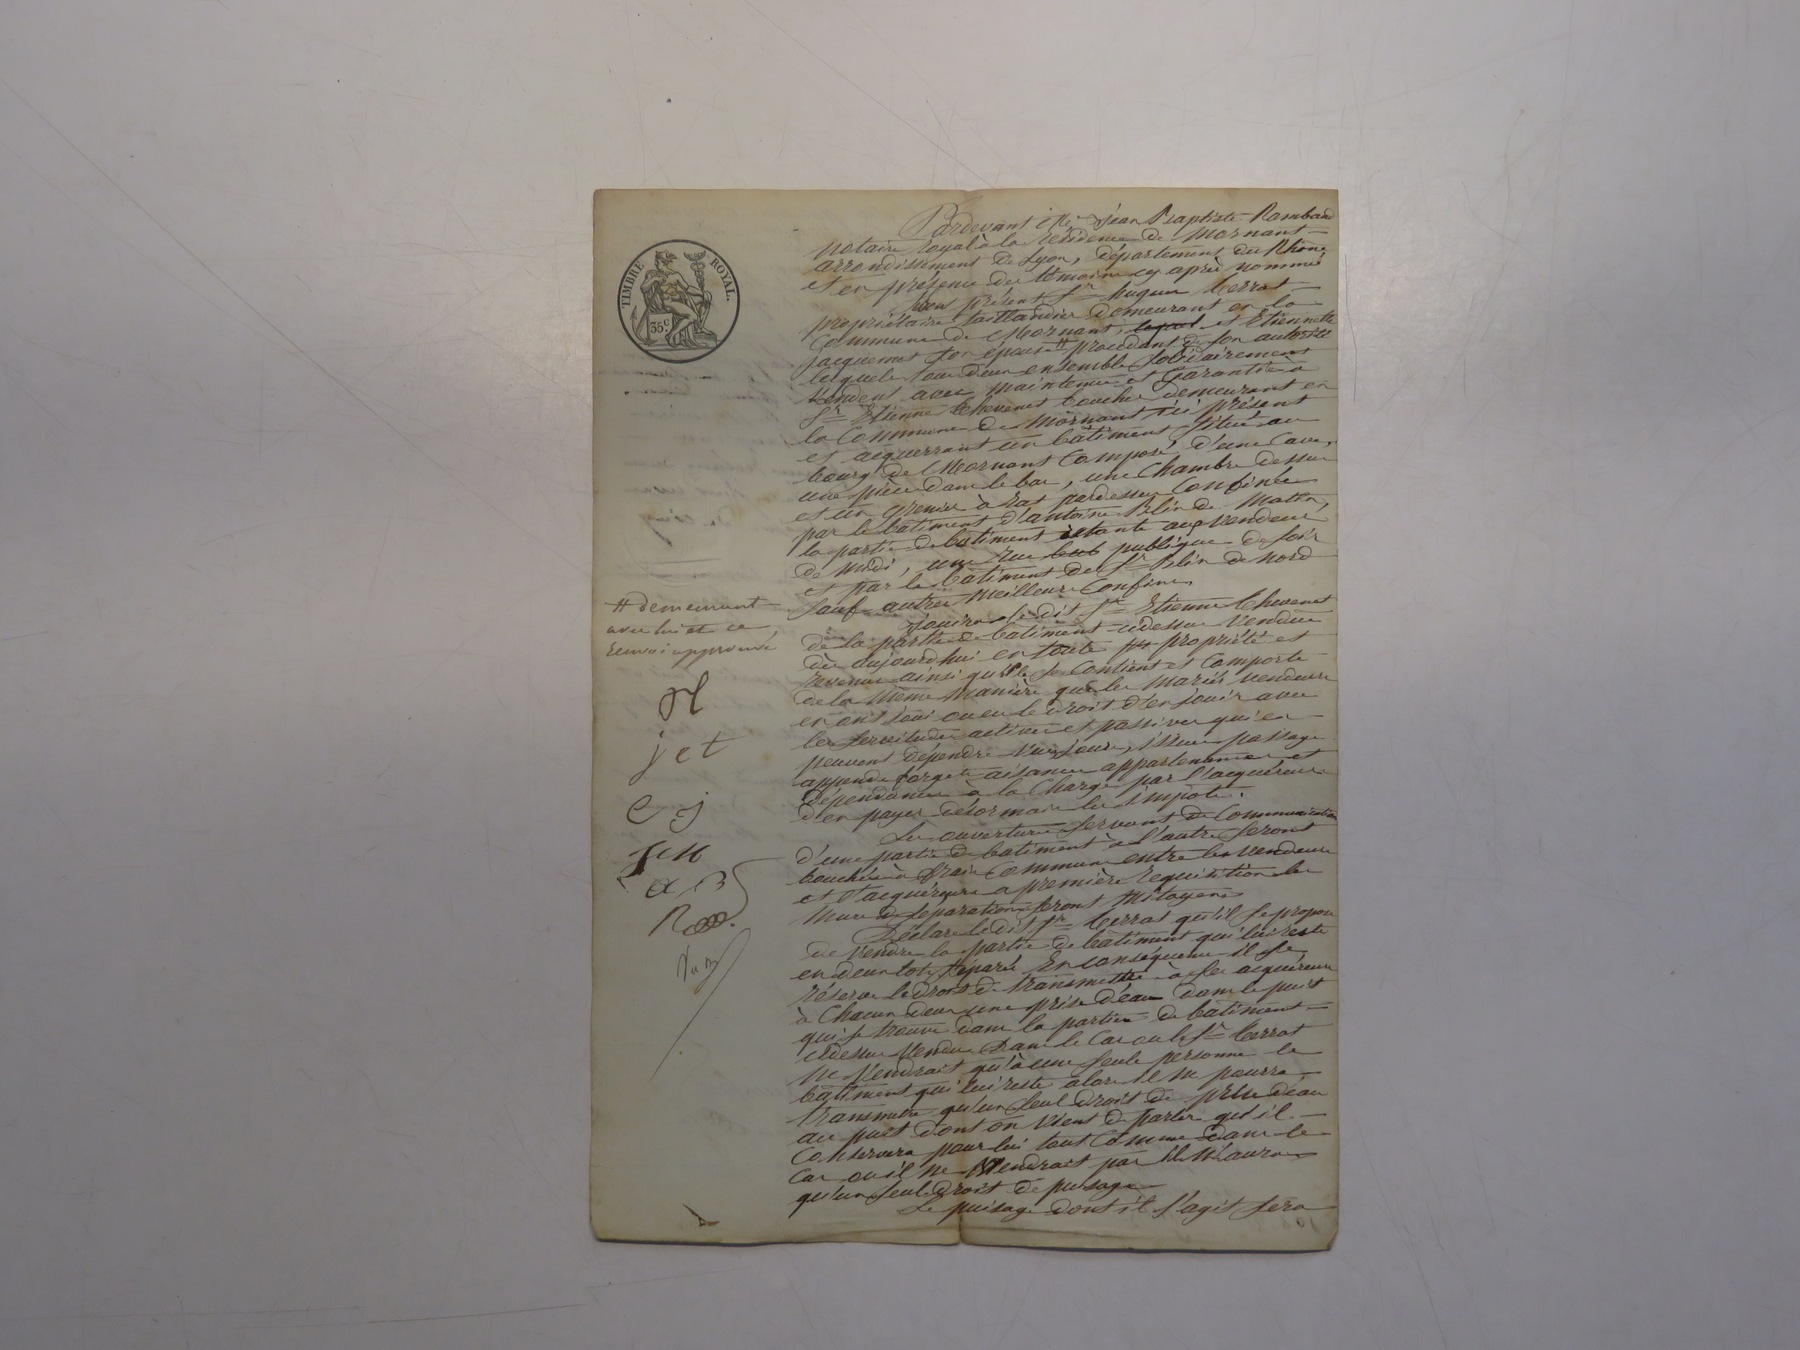 TIMBRE ROYAL.
35 c
Pardevant Me Jean Baptiste Rambaud
notaire royal à la résidence de Mornant
arrondissement de Lyon, département du Rhône
et en présence des témoins cy après nommés
présent Sr hugues Cerrat
propriétaire taillandier demeurant en la
Commune de Mornant, et Etiennette
jacquemet son épouse # procédant de son autorité
lesquels tous deux ensemble solidairement
vendent avec maintenue et garantie à
Sr Etienne Thevenet boucher demeurant en
la Commune de Mornant ici présent
et acquerrant un bâtiment situé au
bourg de Mornant Composé, d'une Cave,
une pièce dans le bas, une Chambre dessus
et un grenier à rat pardessus Confinée
par le bâtiment d'antoine Blin de Matin,
la partie de bâtiment restante aux vendeurs
de midi, une rue publique de soir
et par le bâtiment de Sr Blin de nord
sauf autres meilleurs Confins,
Jouira le dit Sr Etienne Thevenet
de la partie de batiment cidessus vendue
dès aujourdhui en toute propriété et
revenus ainsi qu'elle se Contient et Comporte
de la même manière que les mariés vendeurs
en ont joui ou eu le droit d'en jouir avec
les servitudes actives et passives qui en
peuvent dépendre vues, jours, issues passages
aisances appartenances et
Dépendances à la Charge par l'acquéreur
d'en payer désormais les impots.
Les ouvertures servant de Communication
d'une partie de batiment à l'autre seront
bouchées à frais Communs entre les vendeurs
et l'acquéreur a première réquisition les
murs de séparation seront mitoyens
Déclare le dit Sr Cerrat qu'il se propose
de vendre la partie de bâtiment qui lui reste
en deux lots séparés En conséquence il se
réserve le droit de transmettre à ses acquéreurs
à Chacun d'eux une prise d'eau dans le puit
qui se trouve dans la partie de bâtiment
cidessus vendue Dans le Cas ou le Sr Cerrat
ne vendrait qu'à une seule personne le
bâtiment qui lui reste alors il ne pourra
transmettre qu'un seul droit de prise d'eau
au puit dont on vient de parler qu'il
Conservera pour lui tout Comme dans le
Cas ou il ne vendrait pas il n'aura
qu'un seul droit de puisage
Le puisage dont il s'agit sera
# demeurant
avec lui et ce
renvoi approuvé
j e t
e j